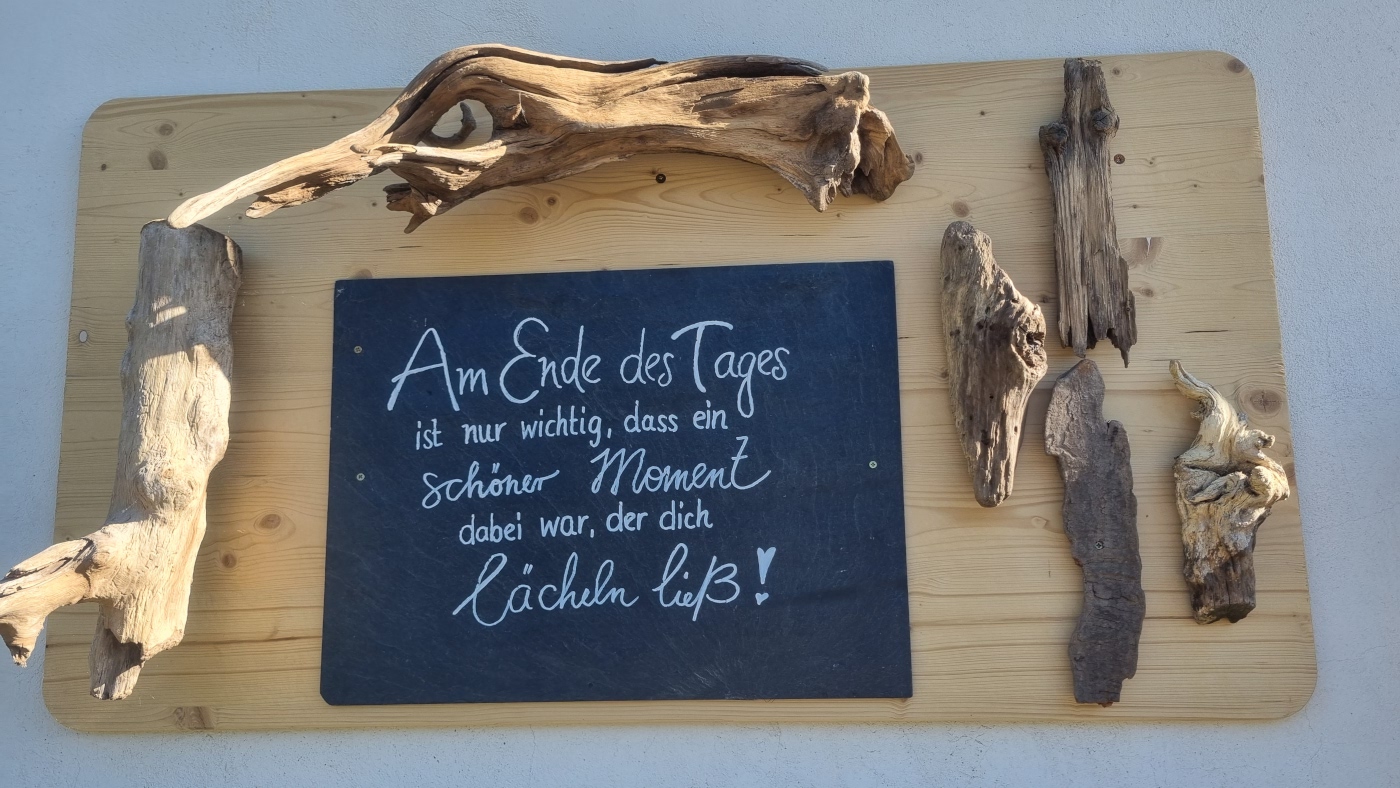 Am Ende des Tages
ist nur wichtig, dass ein
schöner Moment
dabei war, der dich
lächeln ließ!